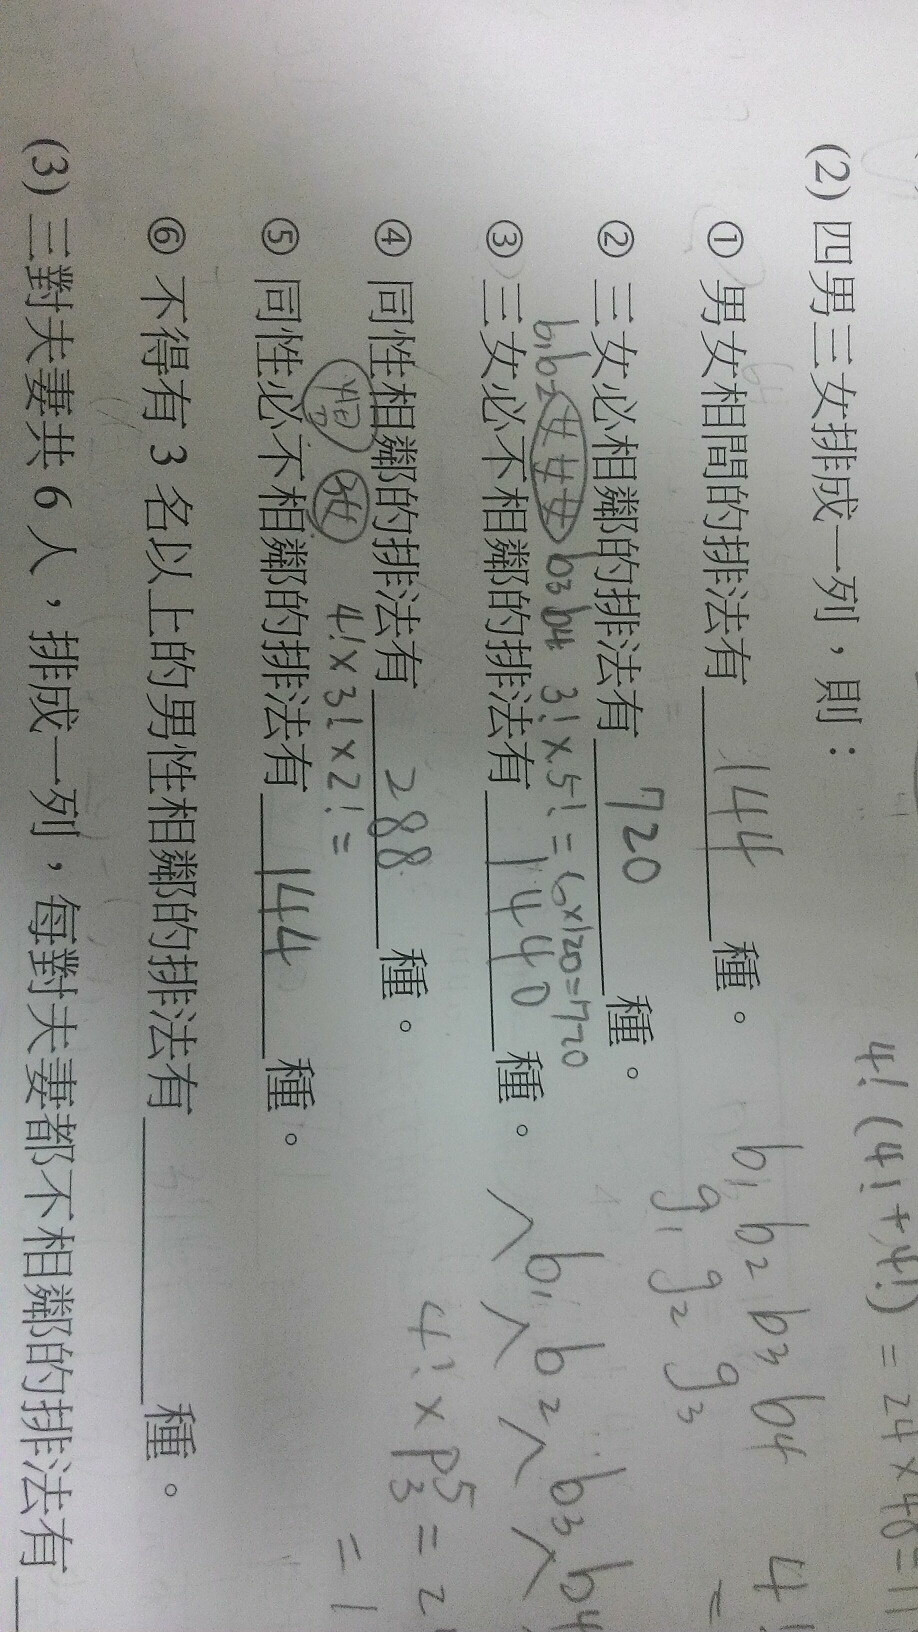 4! (4!+4!) = 24×48=11
(2) 四男三女排成一列，則：
① 男女相間的排法有 144 種。
b₁ b₂ b₃ b₄ 4!
g₁ g₂ g₃ =
② 三女必相鄰的排法有 720 種。
b₁b₂ 女女女 b₃ b₄ 3!×5! = 6×120=720
③ 三女必不相鄰的排法有 1440 種。
∧ b₁ ∧ b₂ ∧ b₃ ∧ b₄
4! × P⁵₃ = 2
= 1
④ 同性相鄰的排法有 288 種。
4男 3女 4!×3!×2! =
⑤ 同性必不相鄰的排法有 144 種。
⑥ 不得有 3 名以上的男性相鄰的排法有 種。
(3) 三對夫妻共 6 人，排成一列，每對夫妻都不相鄰的排法有